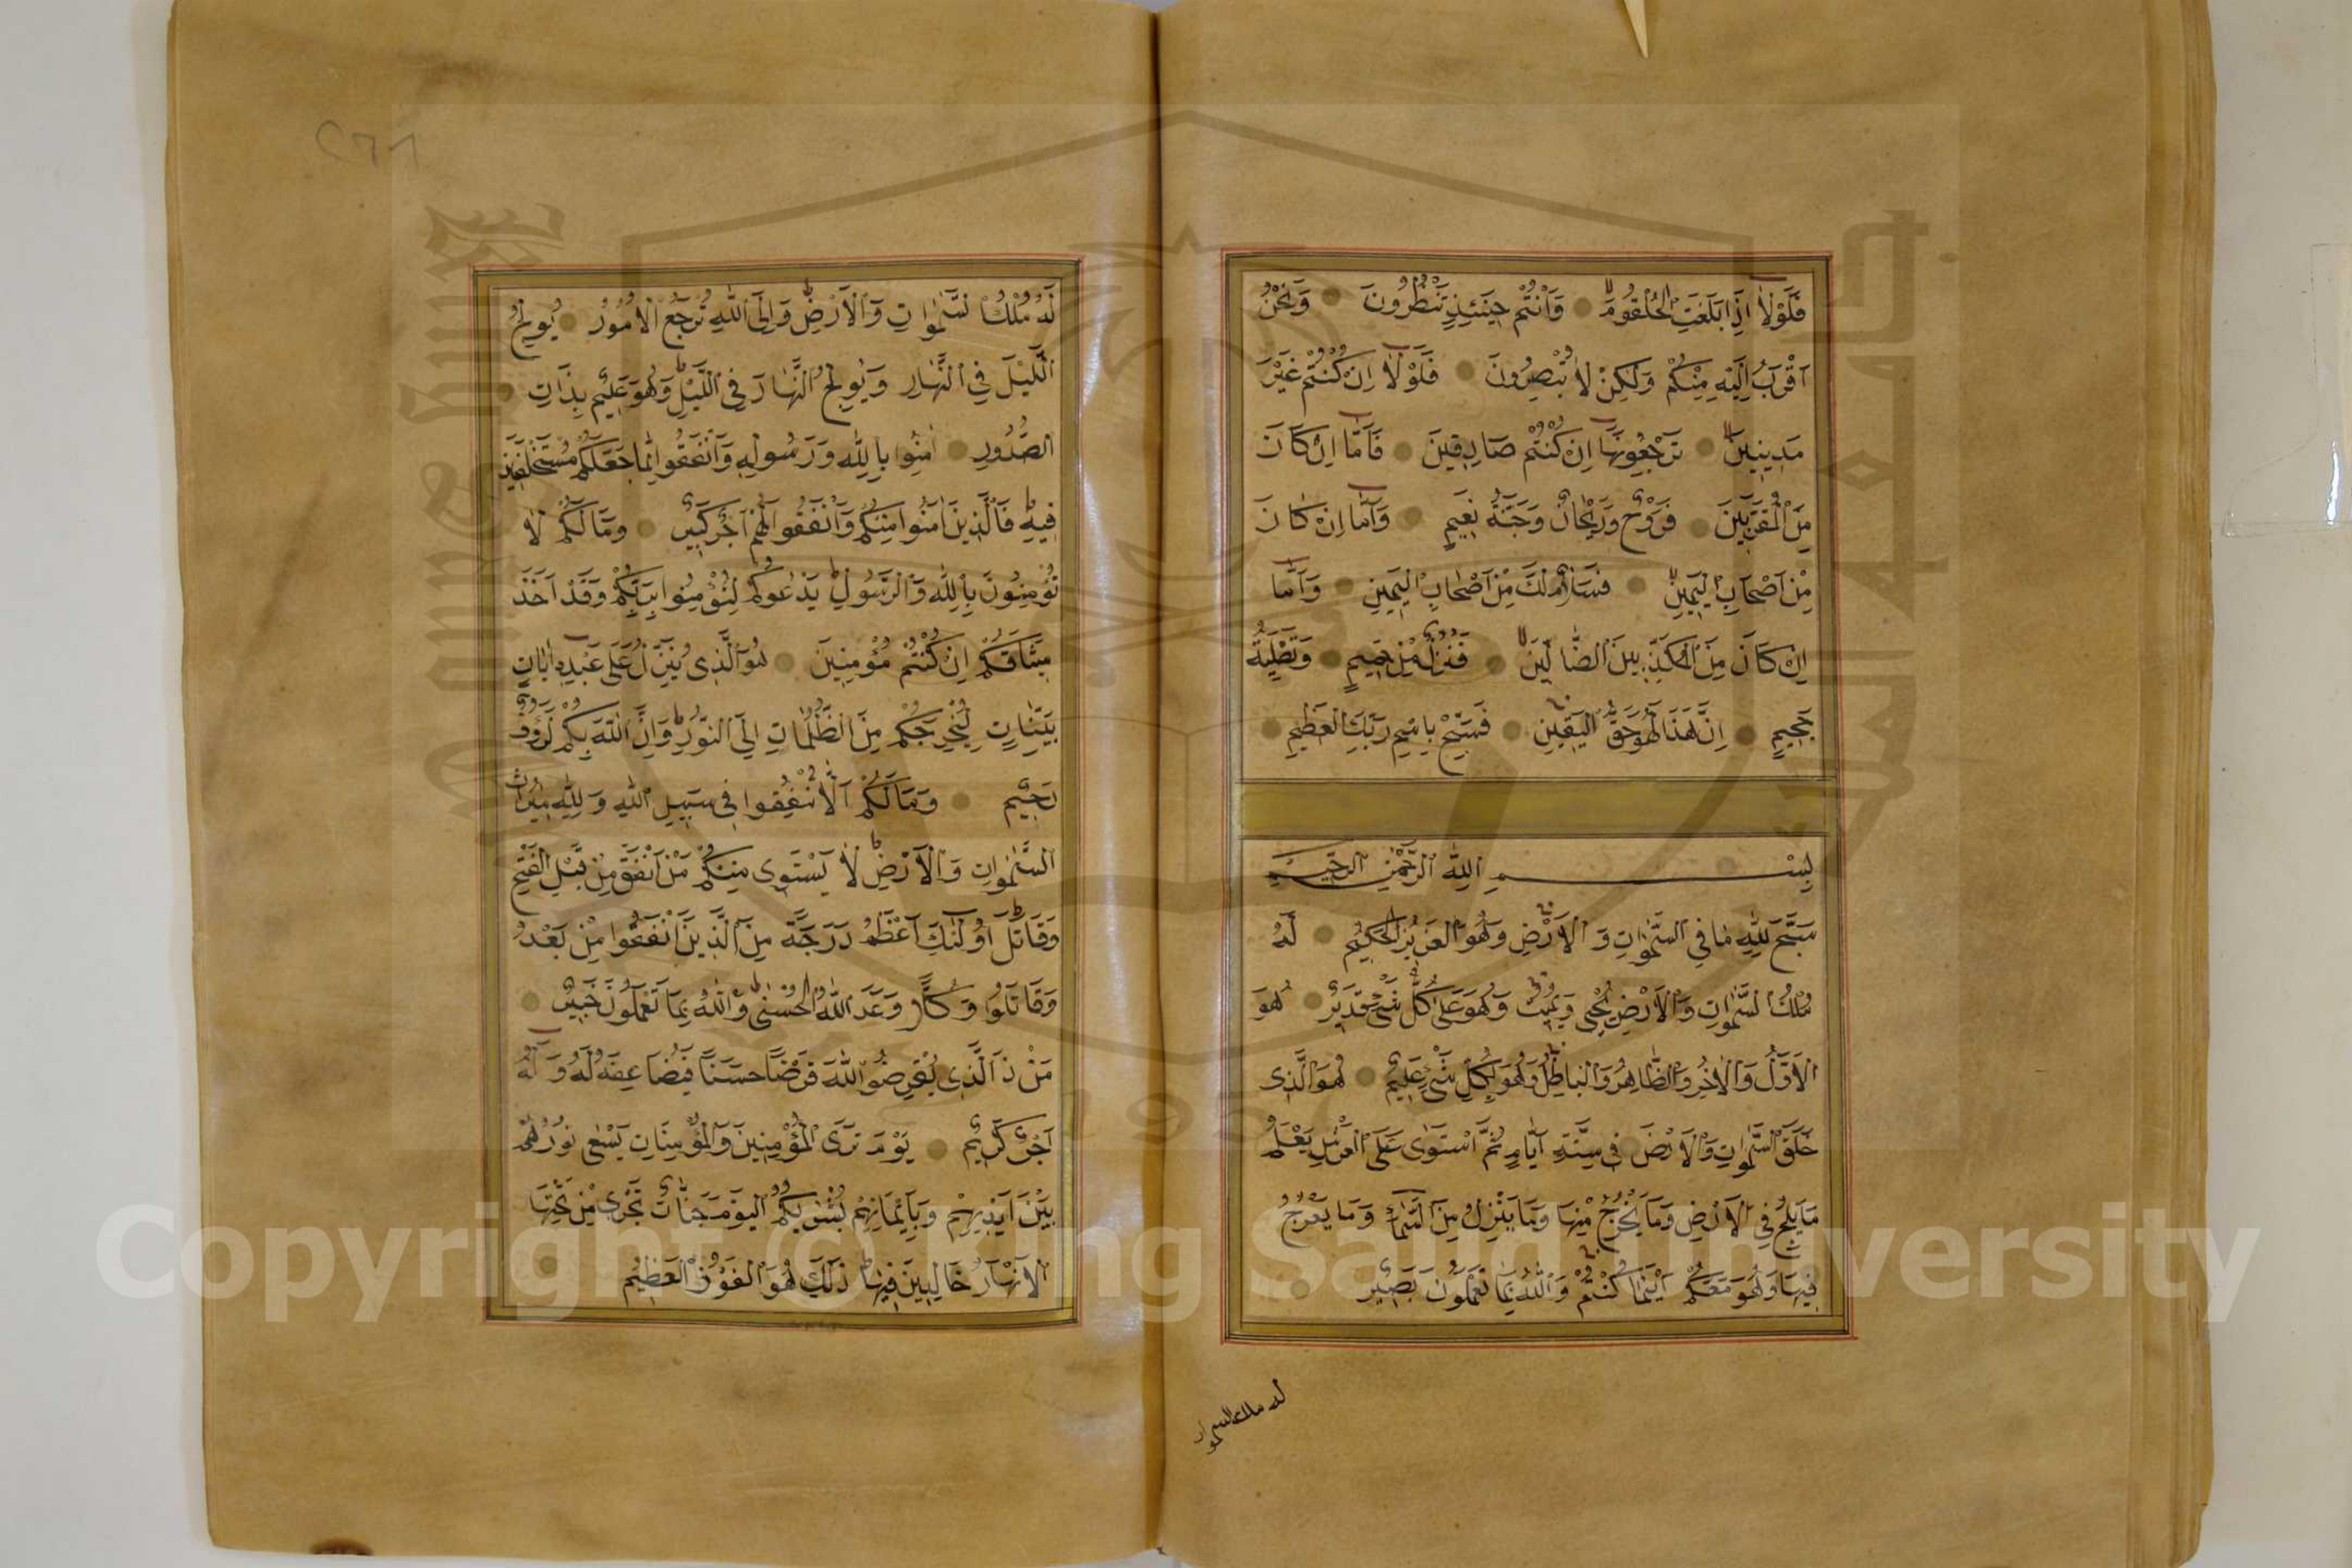 فَلَوْلَا اِذَا بَلَغَتِ الْحُلْقُومَ وَاَنْتُمْ حِينَئِذٍ تَنْظُرُونَ وَنَحْنُ
اَقْرَبُ اِلَيْهِ مِنْكُمْ وَلٰكِنْ لَا تُبْصِرُونَ فَلَوْلَا اِنْ كُنْتُمْ غَيْرَ
مَدِينِينَ تَرْجِعُونَهَا اِنْ كُنْتُمْ صَادِقِينَ فَاَمَّا اِنْ كَانَ
مِنَ الْمُقَرَّبِينَ فَرَوْحٌ وَرَيْحَانٌ وَجَنَّةُ نَعِيمٍ وَاَمَّا اِنْ كَانَ
مِنْ اَصْحَابِ الْيَمِينِ فَسَلَامٌ لَكَ مِنْ اَصْحَابِ الْيَمِينِ وَاَمَّا
اِنْ كَانَ مِنَ الْمُكَذِّبِينَ الضَّالِّينَ فَنُزُلٌ مِنْ حَمِيمٍ وَتَصْلِيَةُ
جَحِيمٍ اِنَّ هٰذَا لَهُوَ حَقُّ الْيَقِينِ فَسَبِّحْ بِاسْمِ رَبِّكَ الْعَظِيمِ
بِسْمِ اللّٰهِ الرَّحْمٰنِ الرَّحِيمِ
سَبَّحَ لِلّٰهِ مَا فِي السَّمٰوَاتِ وَالْاَرْضِ وَهُوَ الْعَزِيزُ الْحَكِيمُ لَهُ
مُلْكُ السَّمٰوَاتِ وَالْاَرْضِ يُحْيِي وَيُمِيتُ وَهُوَ عَلٰى كُلِّ شَيْءٍ قَدِيرٌ هُوَ
الْاَوَّلُ وَالْاٰخِرُ وَالظَّاهِرُ وَالْبَاطِنُ وَهُوَ بِكُلِّ شَيْءٍ عَلِيمٌ هُوَ الَّذِي
خَلَقَ السَّمٰوَاتِ وَالْاَرْضَ فِي سِتَّةِ اَيَّامٍ ثُمَّ اسْتَوٰى عَلَى الْعَرْشِ يَعْلَمُ
مَا يَلِجُ فِي الْاَرْضِ وَمَا يَخْرُجُ مِنْهَا وَمَا يَنْزِلُ مِنَ السَّمَاءِ وَمَا يَعْرُجُ
فِيهَا وَهُوَ مَعَكُمْ اَيْنَمَا كُنْتُمْ وَاللّٰهُ بِمَا تَعْمَلُونَ بَصِيرٌ
له ملك السموات
٢٦٨
لَهُ مُلْكُ السَّمٰوَاتِ وَالْاَرْضِ وَاِلَى اللّٰهِ تُرْجَعُ الْاُمُورُ يُولِجُ
الَّيْلَ فِي النَّهَارِ وَيُولِجُ النَّهَارَ فِي اللَّيْلِ وَهُوَ عَلِيمٌ بِذَاتِ
الصُّدُورِ اٰمِنُوا بِاللّٰهِ وَرَسُولِهِ وَاَنْفِقُوا مِمَّا جَعَلَكُمْ مُسْتَخْلَفِينَ
فِيهِ فَالَّذِينَ اٰمَنُوا مِنْكُمْ وَاَنْفَقُوا لَهُمْ اَجْرٌ كَبِيرٌ وَمَا لَكُمْ لَا
تُؤْمِنُونَ بِاللّٰهِ وَالرَّسُولُ يَدْعُوكُمْ لِتُؤْمِنُوا بِرَبِّكُمْ وَقَدْ اَخَذَ
مِيثَاقَكُمْ اِنْ كُنْتُمْ مُؤْمِنِينَ هُوَ الَّذِي يُنَزِّلُ عَلٰى عَبْدِهِ اٰيَاتٍ
بَيِّنَاتٍ لِيُخْرِجَكُمْ مِنَ الظُّلُمَاتِ اِلَى النُّورِ وَاِنَّ اللّٰهَ بِكُمْ لَرَؤُفٌ
رَحِيمٌ وَمَا لَكُمْ اَلَّا تُنْفِقُوا فِي سَبِيلِ اللّٰهِ وَلِلّٰهِ مِيرَاثُ
السَّمٰوَاتِ وَالْاَرْضِ لَا يَسْتَوِي مِنْكُمْ مَنْ اَنْفَقَ مِنْ قَبْلِ الْفَتْحِ
وَقَاتَلَ اُولٰئِكَ اَعْظَمُ دَرَجَةً مِنَ الَّذِينَ اَنْفَقُوا مِنْ بَعْدُ
وَقَاتَلُوا وَكُلًّا وَعَدَ اللّٰهُ الْحُسْنٰى وَاللّٰهُ بِمَا تَعْمَلُونَ خَبِيرٌ
مَنْ ذَا الَّذِي يُقْرِضُ اللّٰهَ قَرْضًا حَسَنًا فَيُضَاعِفَهُ لَهُ وَلَهُ
اَجْرٌ كَرِيمٌ يَوْمَ تَرَى الْمُؤْمِنِينَ وَالْمُؤْمِنَاتِ يَسْعٰى نُورُهُمْ
بَيْنَ اَيْدِيهِمْ وَبِاَيْمَانِهِمْ بُشْرٰيكُمُ الْيَوْمَ جَنَّاتٌ تَجْرِي مِنْ تَحْتِهَا
الْاَنْهَارُ خَالِدِينَ فِيهَا ذٰلِكَ هُوَ الْفَوْزُ الْعَظِيمُ
Copyright © King Saud University
1957